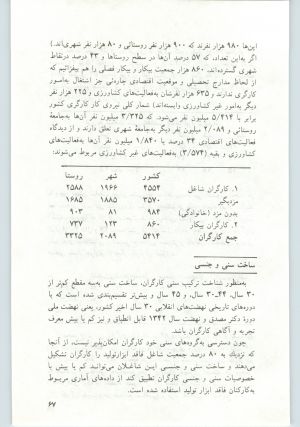 این‌ها ۹۸۰ هزار نفرند که ۹۰۰ هزار نفر روستائی و ۸۰ هزار نفر شهری‌اند.)
اگر به‌این تعداد، که ۵۷ درصد آن‌ها در سطح روستاها و ۴۳ درصد در نقاط
شهری گسترده‌اند، ۸۶۰ هزار جمعیت بیکار و بیکار فصلی را هم بیفزائیم که
از لحاظ مدارج تحصیلی و موقعیت اقتصادی چاره‌ئی جز اشتغال به‌امور
کارگری ندارند و ۶۳۵ هزار نفرشان به‌فعالیت‌های کشاورزی و ۲۲۵ هزار نفر
دیگر به‌امور غیر کشاورزی وابسته‌اند) شمار کلی نیروی کار کارگری کشور
برابر با ۵/۴۱۴ میلیون نفر می‌شود. که ۳/۳۲۵ میلیون نفر آن‌ها به‌جامعهٔ
روستائی و ۲/۰۸۹ میلیون نفر دیگر به‌جامعهٔ شهری تعلق دارند و از دیدگاه
فعالیت‌های اقتصادی ۳۴ درصد یا ۱/۸۴۰ میلیون نفر آن‌ها به‌فعالیت‌های
کشاورزی و بقیه (۳/۵۷۴) به‌فعالیت‌های غیر کشاورزی مربوط می‌شوند:
کشور شهر روستا
۱. کارگران شاغل ۴۵۵۴ ۱۹۶۶ ۲۵۸۸
مزدبگیر ۳۵۷۰ ۱۸۸۵ ۱۶۸۵
بدون مزد (خانوادگی) ۹۸۴ ۸۱ ۹۰۳
۲. کارگران بیکار ۸۶۰ ۱۲۳ ۷۳۷
جمع کارگران ۵۴۱۴ ۲۰۸۹ ۳۳۲۵
ساخت سنی و جنسی
به‌منظور شناخت ترکیب سنی کارگران، ساخت سنی به‌سه مقطع کم‌تر از
۳۰ سال، ۴۴ـ۳۰ سال، و ۴۵ سال و بیش‌تر تقسیم‌بندی شده است که با
دوره‌های تاریخی نهضت‌های انقلابی ۳۰ سال اخیر کشور، یعنی نهضت ملی
دورهٔ دکتر مصدق و نهضت سال ۱۳۴۲ قابل انطباق و نیز کم یا بیش معرف
تجربه و آگاهی کارگران باشد.
چون دسترسی به‌گروه‌های سنی خود کارگران امکان‌پذیر نیست، از آنجا
که نزدیک به ۸۰ درصد جمعیت شاغل فاقد ابزار تولید را کارگران تشکیل
می‌دهند و ساخت سنی و جنسی این شاغلان می‌تواند کم یا بیش با
خصوصیات سنی و جنسی کارگران تطبیق کند از داده‌های آماری مربوط
به‌کارکنان فاقد ابزار تولید استفاده شده است.
۶۷